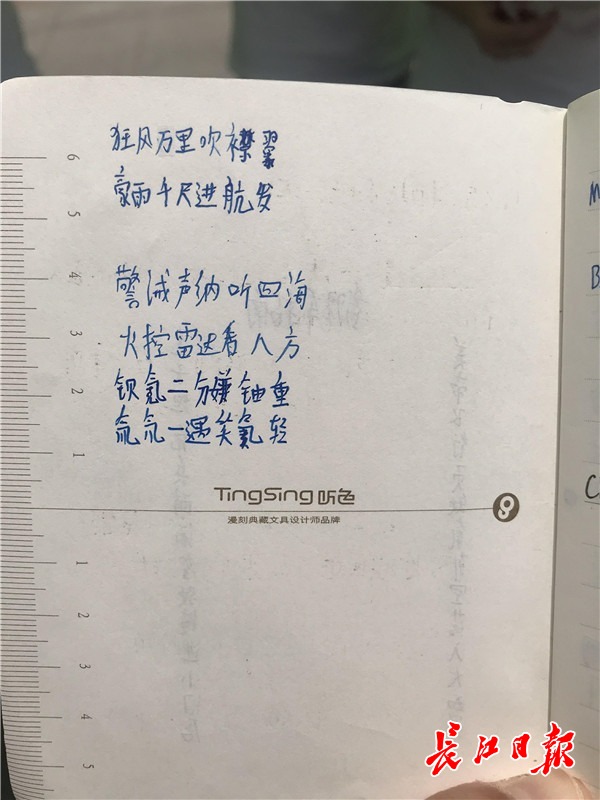 狂风万里吹襟翼
豪雨千尺进航发
警诫声纳听四海
火控雷达看八方
钡氪二分嫌铀重
氚氘一遇笑氦轻
TingSing听色
漫刻典藏文具设计师品牌
6
5
4
3
2
1
1
2
3
4
5
M
B
C
长江日报